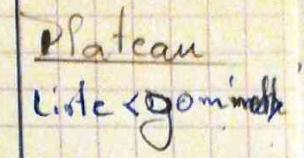 Plateau
Liste <gommette